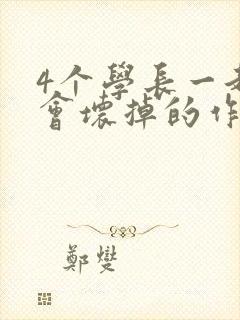 4个學長一
會壞掉的作
鄭燮